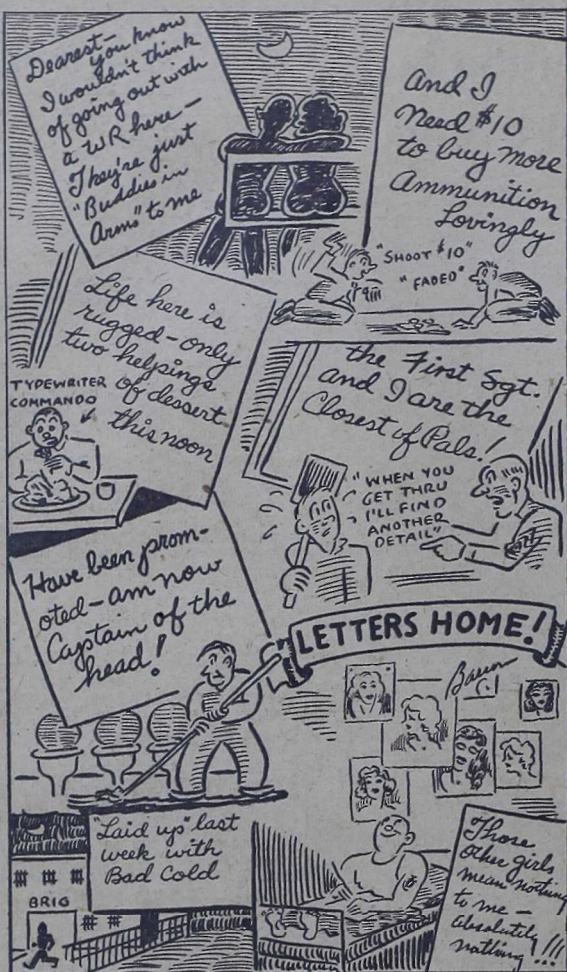 Dearest–
you know
I wouldn't think
of going out with
a WR here –
They're just
"Buddies in
Arms" to me
And I
need $10
to buy more
Ammunition
Lovingly
"SHOOT $10"
"FADED"
Life here is
rugged – only
two helpings
of dessert
this noon
TYPEWRITER
COMMANDO
the First Sgt.
and I are the
Closest of Pals!
"WHEN YOU
GET THRU
I'LL FIND
ANOTHER
DETAIL"
Have been prom-
oted – am now
Captain of the
head!
LETTERS HOME!
"Laid up" last
week with
Bad Cold
BRIG
Those
other girls
mean nothing
to me –
absolutely
nothing!!!